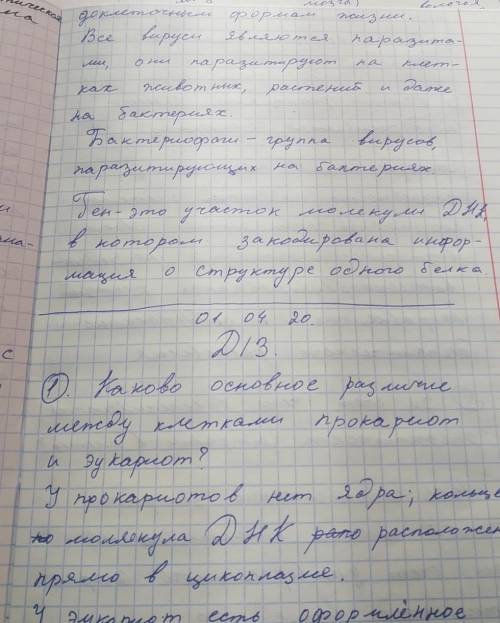 доклеточным формам жизни.
Все вирусы являются паразита-
ми, они паразитируют на клет-
ках животных, растений и даже
на бактериях.
Бактериофаги - группа вирусов,
паразитирующих на бактериях.
Ген - это участок молекулы ДНК,
в котором закодирована инфор-
мация о структуре одного белка.
01. 04. 20.
Д/З.
1. Каково основное различие
между клетками прокариот
и эукариот?
У прокариотов нет ядра; кольце
молекула ДНК расположен
прямо в цикоплазме.
У эукариот есть оформленное